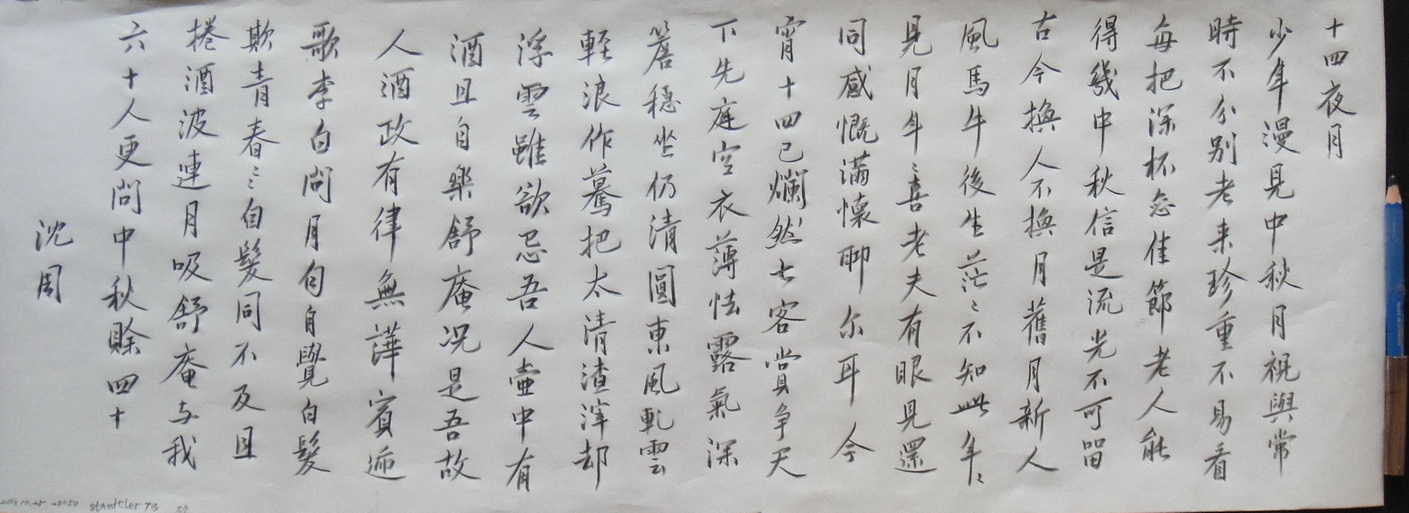 十四夜月
少年漫見中秋月視與常
時不分別老来珍重不易看
每把深杯念佳節老人能
得幾中秋信是流光不可留
古今換人不換月舊月新人
風馬牛後生茫〻不知此年〻
見月年〻喜老夫有眼見還
同感慨滿懷聊尔耳今
宵十四已爛然七客賞爭天
下先庭空衣薄怯露氣深
簷穩坐仍清圓東風軋雲
輕浪作驀把太清渣滓却
浮雲雖欲忌吾人壷中有
酒且自樂舒庵况是吾故
人酒政有律無譁賓逅
歌李白問月句自覺白髮
欺青春〻自髮同不及且
捲酒波連月吸舒庵与我
六十人更問中秋賒四十
沈周
staedtler 713